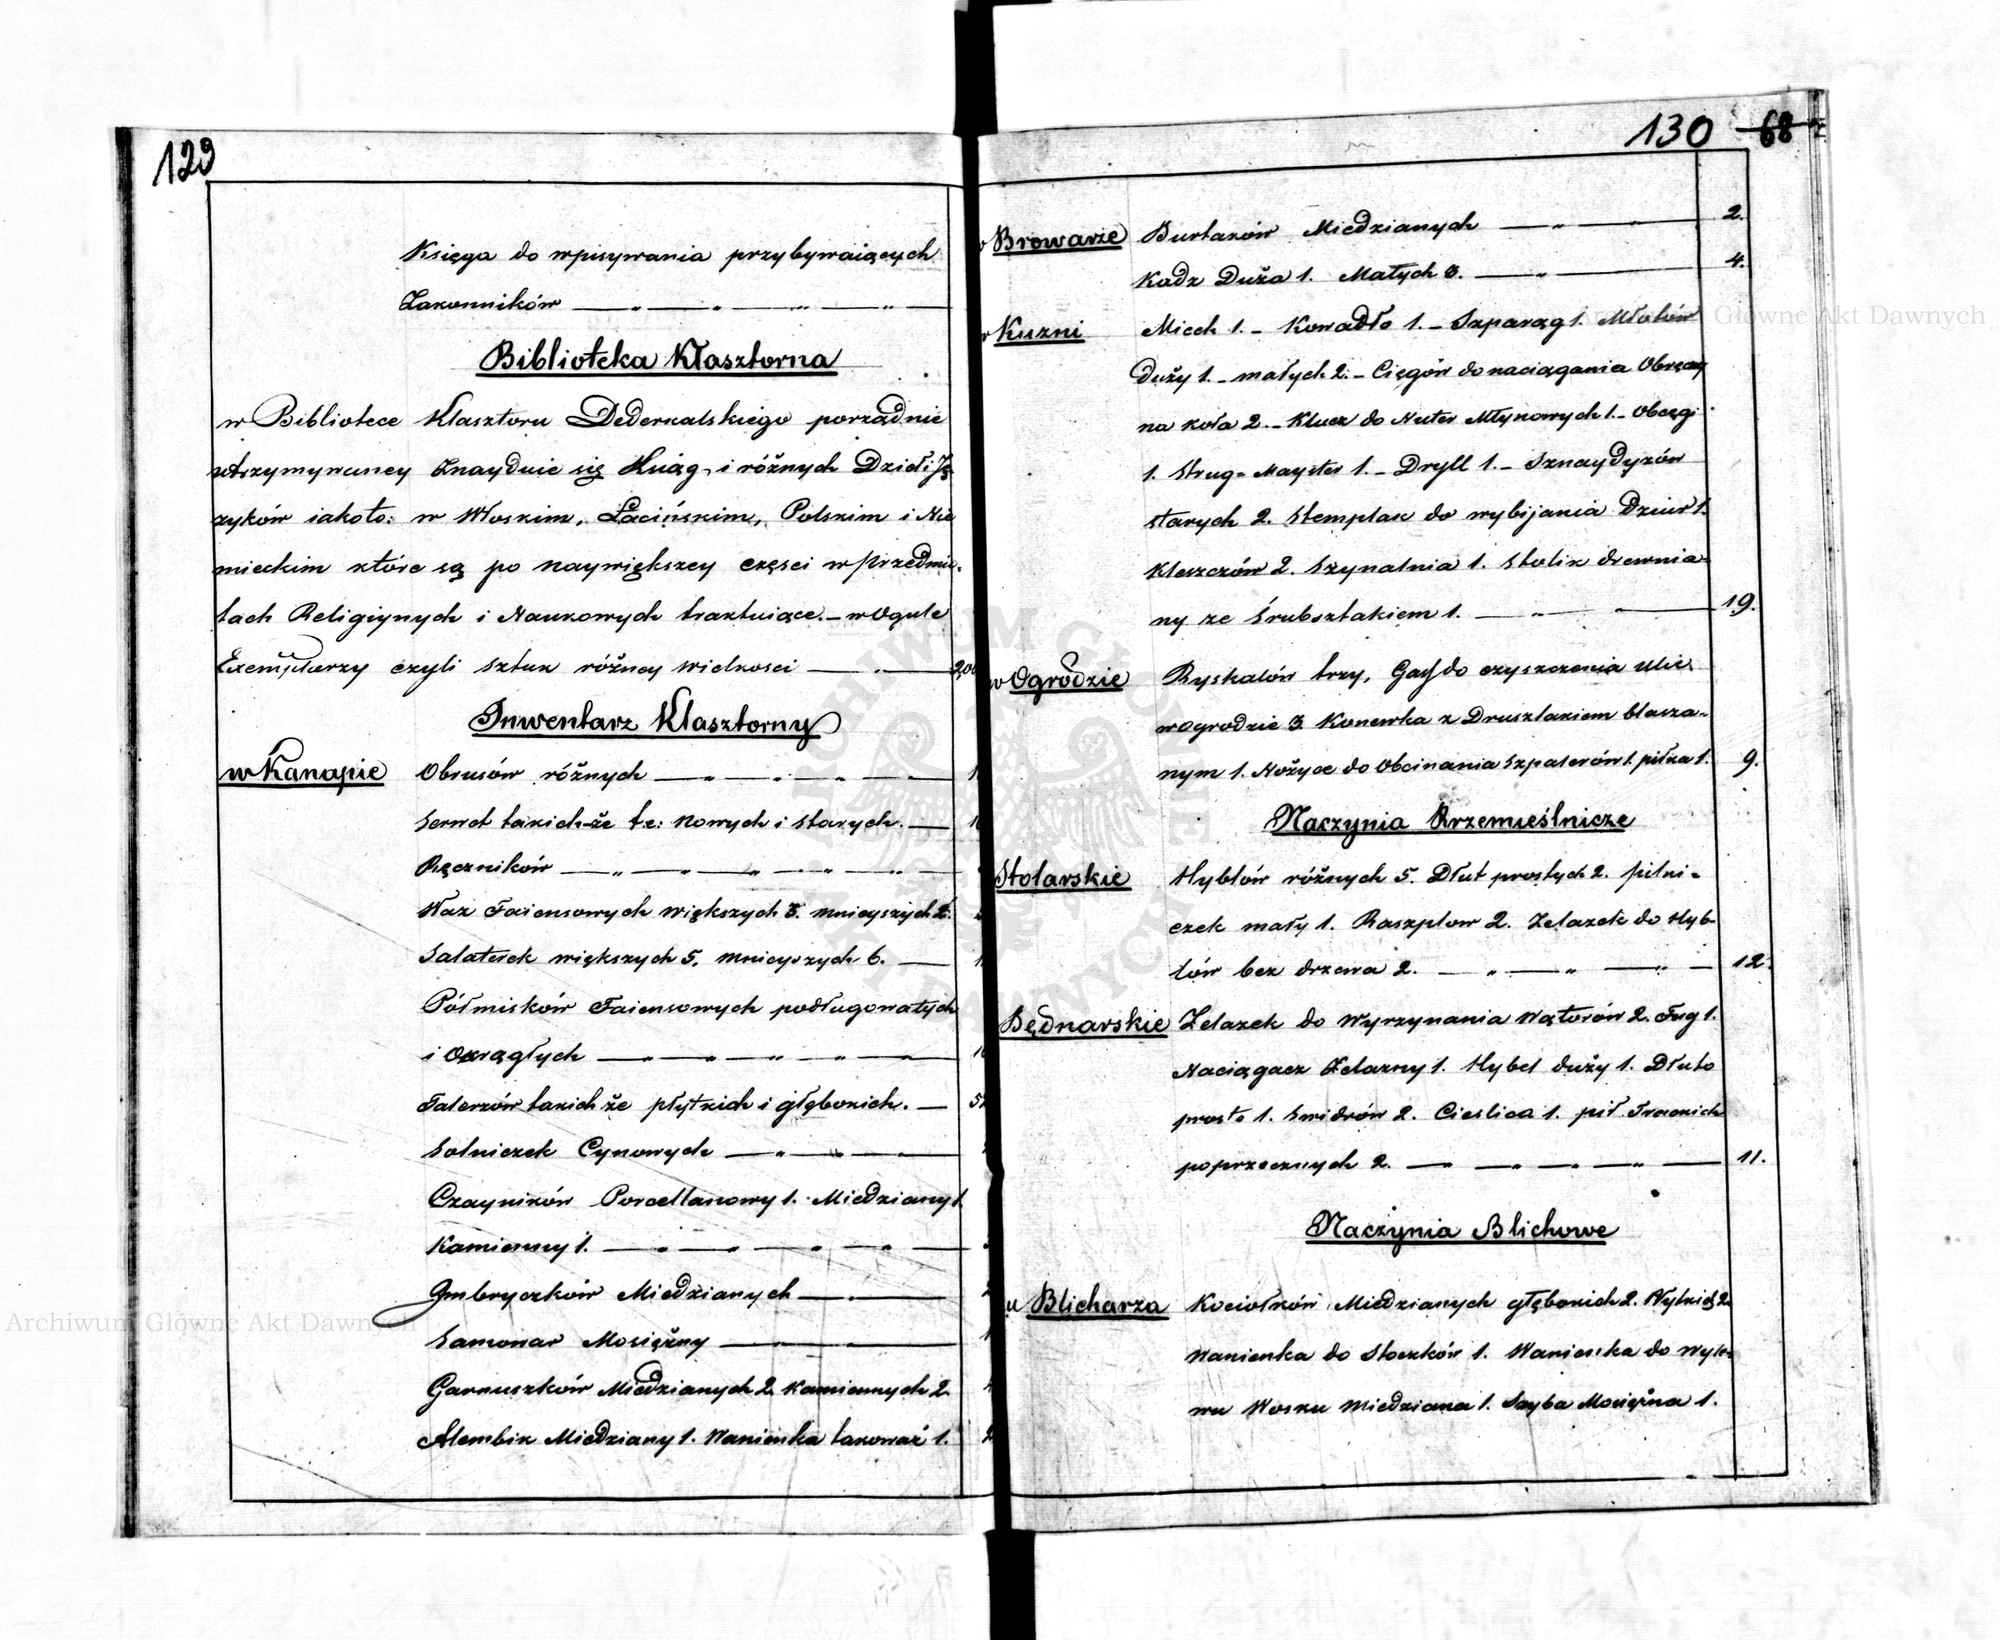 129
Księga do wpisywania przybywaiących
Zakonników
Biblioteka Klasztorna
w Bibliotece Klasztoru Dederkalskiego porządnie
utrzymywaney Znayduie się Xsiąg i różnych Dzieł i Ję
zyków iakoto: w Włoskim, Łacińskim, Polskim i Nie
mieckim które są po naywiększey częsci w Przedmio
tach Religiynych i Naukowych traktuiące. – w Ogule
Exemplarzy czyli sztuk różney wielkosci
Inwentarz Klasztorny
w Kanapie Obrusów różnych
Serwet takich-że t.e: Nowych i starych.
Ręczników
Waz Faiensowych większych 3. mnieyszych 2.
Salaterek większych 5. mnieyszych 6.
Półmisków Faiensowych podługowatych
i Okrągłych
Talerzów takich że płytkich i głębokich.
Solniczek Cynowych
Czayników Porcellanowy 1. Miedziany 1.
Kamienny 1.
Imbryczków Miedzianych
Samowar Mosiężny
Garnuszków Miedzianych 2. Kamiennych 2.
Alembik Miedziany 1. Wanienka takoważ 1.
130 68
Browarze Burtaków Miedzianych 2.
Kadz Duża 1. Małych 3. 4.
Kuzni Miech 1. – Kowadło 1. – Szparąg 1. Młotów
duży 1. – małych 2. – Cięgów do naciągania Obręczy
na koła 2. – Klucz do Muter Młynowych 1. – Obcęgi
1. Strug-Mayster 1. – Dryll 1. – Sznaydyzów
starych 2. Stemplak do wybijania Dziur 1.
Kleszczów 2. Szynalnia 1. Stolik drewnia-
ny ze Śrubsztakiem 1. 19.
w Ogrodzie Ryskalów trzy, Gac do czyszczenia Ulic
w Ogrodzie 3. Konewka z Drusztakiem blasza-
nym 1. Nożyce do Obcinania Szpalerów 1. piłka 1. 9.
Naczynia Rzemieślnicze
Stolarskie Hyblów różnych 5. Dłut prostych 2. pilni-
czek mały 1. Raszplow 2. Zelazek do Hyb-
lów bez drzewa 2. 12.
Bednarskie Zelazek do Wyrzynania Wątorów 2. Fug 1.
Naciągacz Zelazny 1. Hybel duży 1. Dłuto
proste 1. Swidrów 2. Cieslica 1. pił Trackich
poprzecznych 2. 11.
Naczynia Blichowe
u Blicharza Kociołków Miedzianych głębokich 2. Płytkich 2.
Wanienka do Stoczków 1. Wanienka do Wyle-
wu Wosku Miedziana 1. Szyba Mosiężna 1.
Archiwum Główne Akt Dawnych
Archiwum Główne Akt Dawnych